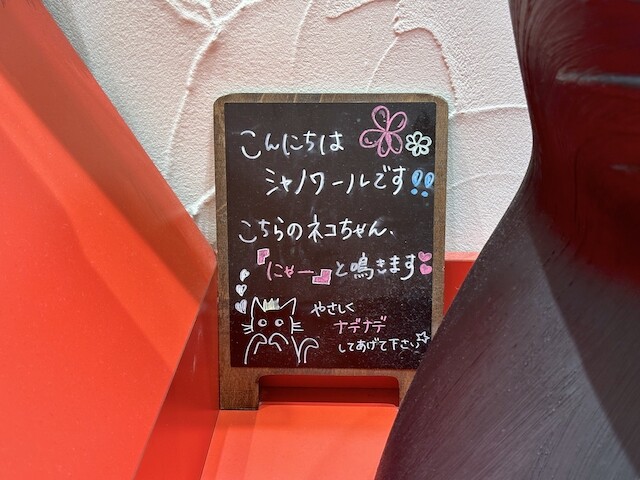 こんにちは
シャノワールです!!
こちらのネコちゃん、
『にゃー』と鳴きます
やさしく
ナデナデ
してあげて下さい